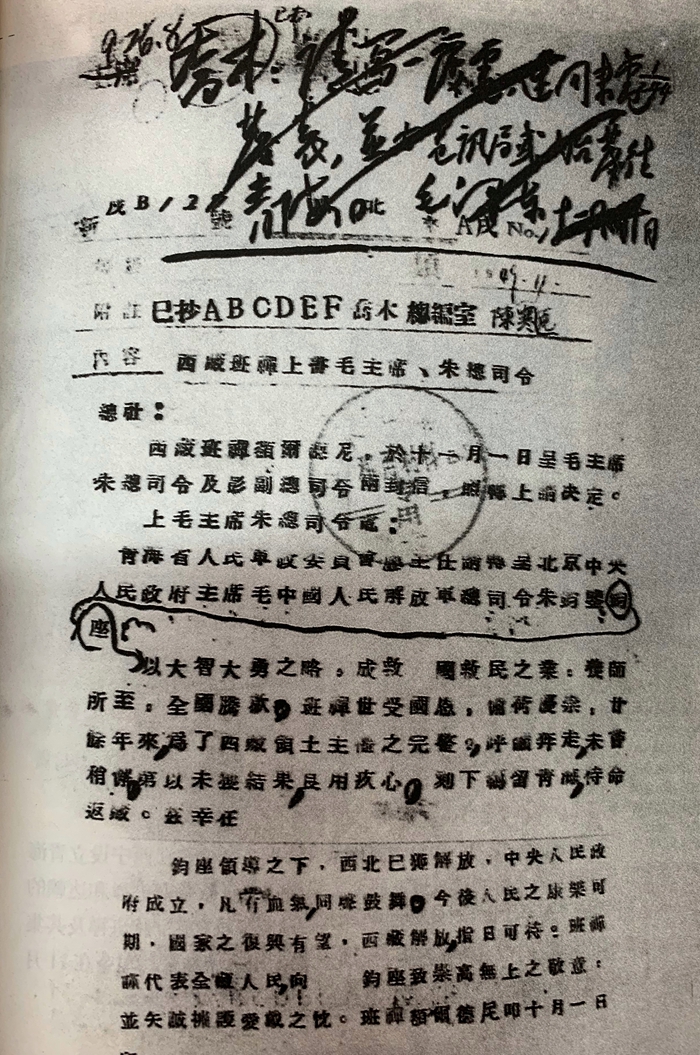 喬木：請寫一復電，
毛澤東
戌B12 號 北 A戌 No.
1949.11.
附註 已抄ABCDEF 喬木 總編室 陳
內容 西藏班禪上書毛主席、朱總司令
總社：
西藏班禪額爾德尼，於十一月一日呈毛主席
朱總司令及彭副總司令兩封信，照轉上請決定。
上毛主席朱總司令電：
青海省人民軍政委員會 主任請轉呈北京中央
人民政府主席毛中國人民解放軍總司令朱鈞鑒鈞
座
以大智大勇之略，成救 國救民之業，義師
所至，全國騰歡，班禪世受國恩，備荷優崇，廿
餘年來，為了西藏領土主權之完整，呼籲奔走，未嘗
稍懈，第以未獲結果，良用疚心。刻下羈留青海，待命
返藏。茲幸在
鈞座領導之下，西北已獲解放，中央人民政
府成立，凡有血氣，同聲鼓舞。今後人民之康樂可
期，國家之復興有望，西藏解放，指日可待。班禪
謹代表全藏人民，向 鈞座致崇高無上之敬意，
並矢誠擁護愛戴之忱。班禪額爾德尼叩十月一日